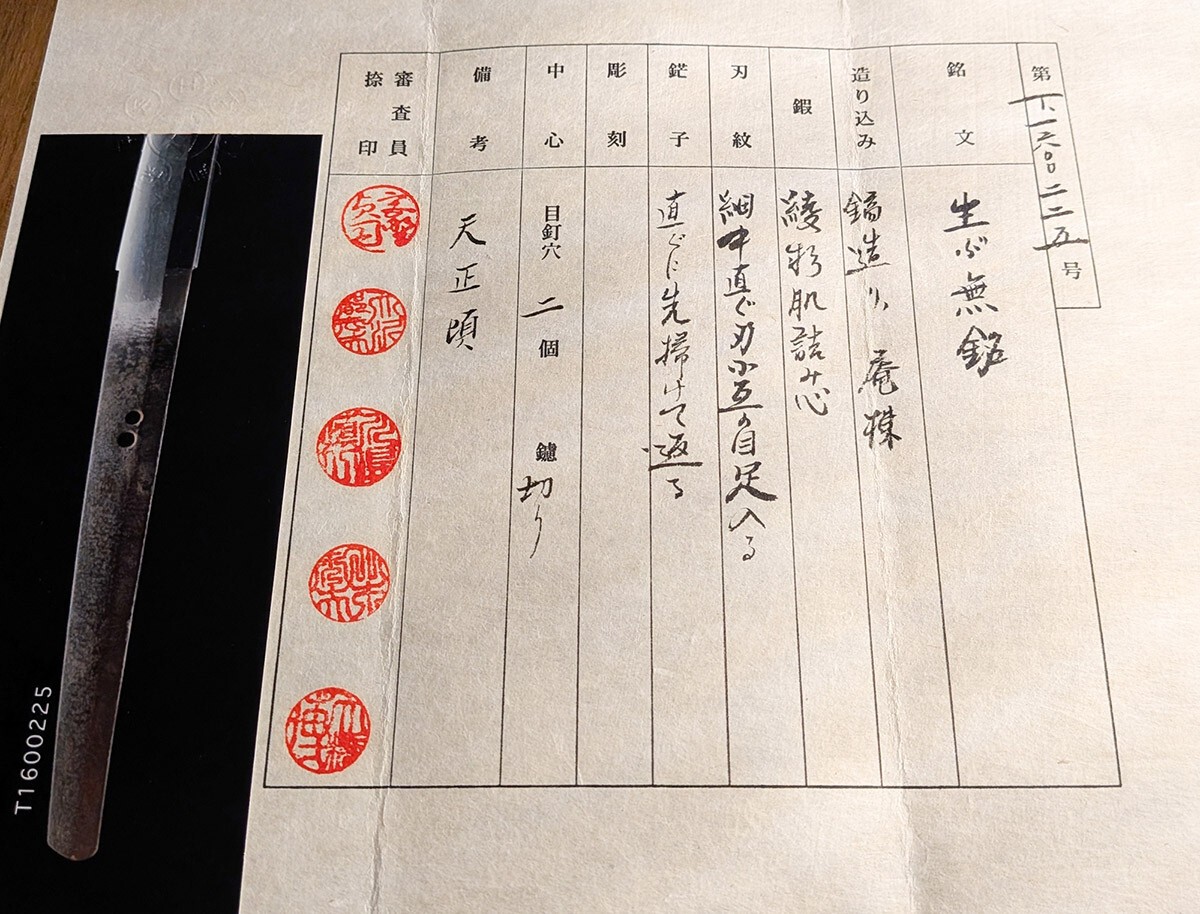 第T一六〇〇二二五号
銘文 生ぶ無銘
造り込み 鎬造り、庵棟
鍜 綾杉肌詰み心
刃紋 細中直ぐ刃小互の目足入る
鋩子 直ぐに先掃けて返る
彫刻
中心 目釘穴 二 個 鑢 切り
備考 天正頃
審査員
捺印
T1600225